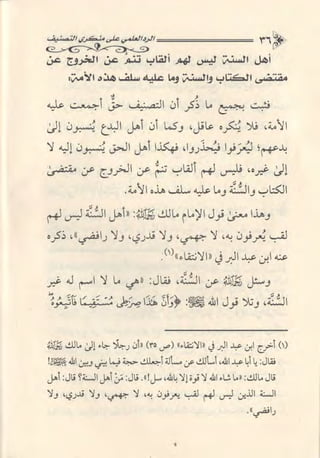 ٣٦ الرد العلمي على منكري التصنيف
أهل السنة ليس لهم ألقاب تنم عن الخروج عن
مقتضى الكتاب والسنة وما عليه سلف هذه الأمة:
فثبت بجميع ما ذُكر أن التصنيف حقٌّ أجمعت عليه
الأمة، فلا يُنكره عاقل، وكما أن أهل البدع يُنسبون إلى
بدعهم؛ ليُعرفوا فيُحذروا، فهكذا أهل الحق يُنسبون إليه لا
إلى غيره، فليس لهم ألقاب تنمُّ عن الخروج عن مقتضى
الكتاب والسُّنَّة وما عليه سلف هذه الأمة.
وهذا معنى قول الإمام مالك: «أهل السُّنة ليس لهم
لقب يُعرفون به، لا جهمي، ولا قدري، ولا رافضي»، ذكره
عنه ابن عبد البر في «الانتقاء»(١).
وسئل عن السُّنة، فقال: «هي ما لا اسم له غير
السُّنة، وتلا قول الله: ﴿وَأَنَّ هَٰذَا صِرَٰطِى مُسْتَقِيمًا فَٱتَّبِعُوهُ
(١) أخرج ابن عبد البر في «الانتقاء» (ص ٣٥) «أن رجلا جاء إلى مالك
فقال: يا أبا عبد الله، أسألك عن مسألة أجعلك حجة فيما بيني وبين الله!
قال مالك: «ما شاء الله لا قوة إلا بالله، سل!». قال: مَنْ أهل السنة؟ قال: أهل
السنة الذين ليس لهم لقب يعرفون به، لا جهمي، ولا قدري، ولا
رافضي».